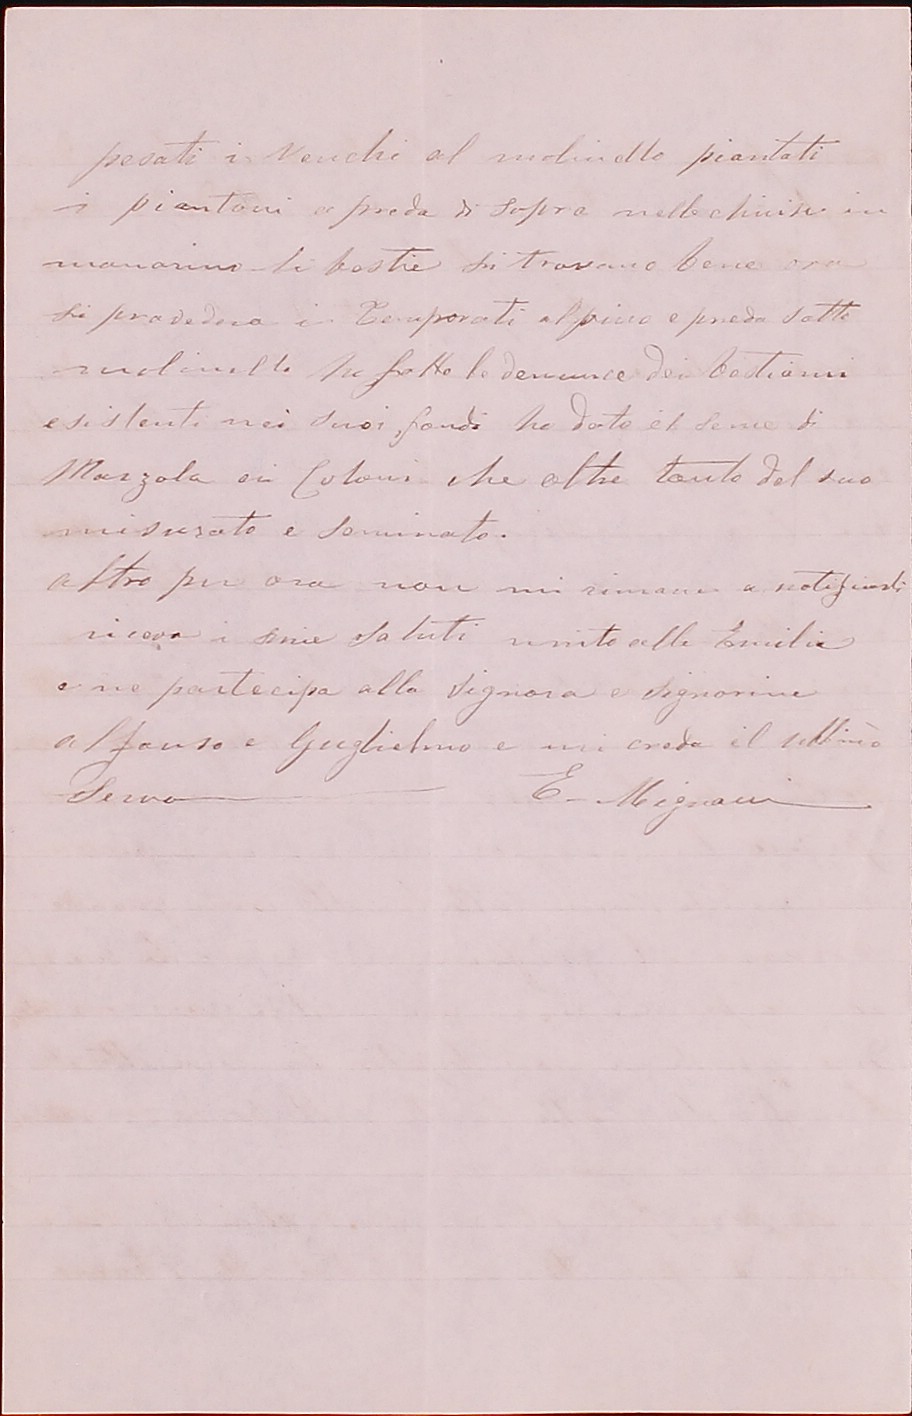 pesati i Venchi al molinello piantati
i piantoni a preda di sopra nelle chiuse in
li bestie si trovano bene ora
si provedera i Temporati al pino e preda sotto
molinello ho fatto le denunce dei bestiami
esistenti nei suoi fondi ho dato il seme di
Marzola ai Coloni che altre tanto del suo
misurato e seminato.
altro per ora non mi rimane a notificarli
riceva i miei saluti unito alla Emilia
e ne partecipa alla Signora e Signorine
Alfonso e Guglielmo e mi creda il
Servo E. Mignani